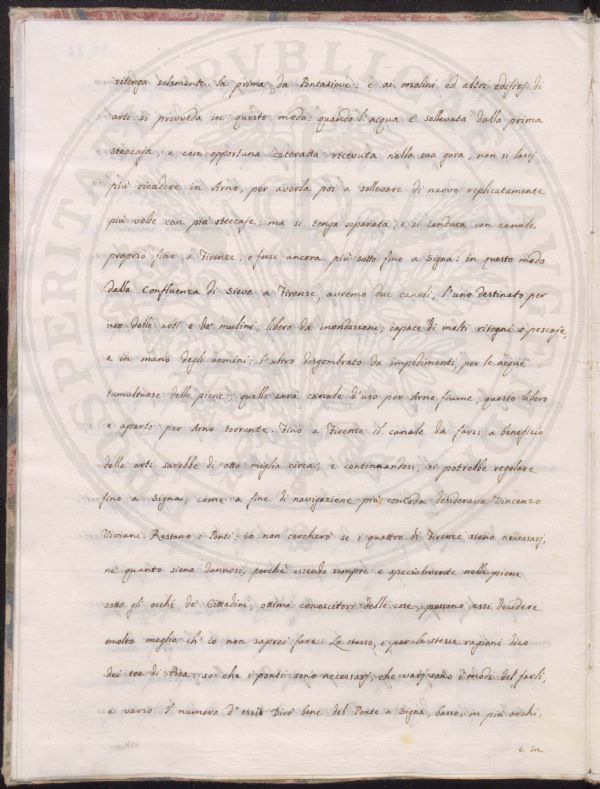 ritenga solamente la prima da Pontasieve: e ai molini ed altri edifizj di
arti si provveda in questo modo: quando l'acqua è sollevata dalla prima
steccaja, e con opportuna cateratta ricevuta nella sua gora, non si lasci
più ricadere in Arno, per averla poi a sollevare di nuovo replicatamente
più volte con più steccaje, ma si tenga separata, e si conduca con canale
proprio fino a Firenze, o forse ancora più sotto fino a Signa: in questo modo
dalla Confluenza di Sieve a Firenze, avremo due canali, l'uno destinato per
uso delle arti e de' mulini, libero da inondazioni, capace di molti ritegni o pescaje,
e in mano degli uomini; l'altro disgombrato da impedimenti, per le acque
tumultuose delle piene; quello sarà canale d'uso per Arno fiume, questo libero
e aperto per Arno torrente. Fino a Firenze il canale da farsi a benefizio
delle arti sarebbe di otto miglia circa; e continuandosi, si potrebbe regolare
fino a Signa, come a fine di navigazione più comoda desiderava Vincenzo
Viviani. Restano i Ponti: io non cercherò se i quattro di Firenze sieno necessarj,
nè quanto sieno dannosi, perchè essendo sempre e specialmente nelle piene
sotto gli occhi de' Cittadini, ottimi conoscitori delle cose, possono essi decidere
molto meglio ch'io non saprei fare. Lo stesso, e per le stesse ragioni dico
dei tre di Pisa: so che i ponti sono necessarj, che varj sono i modi del farli,
e vario il numero d'essi. Dirò bene del Ponte a Signa, basso, in più archi,
e in
PROSPERITATI PVBLICAE